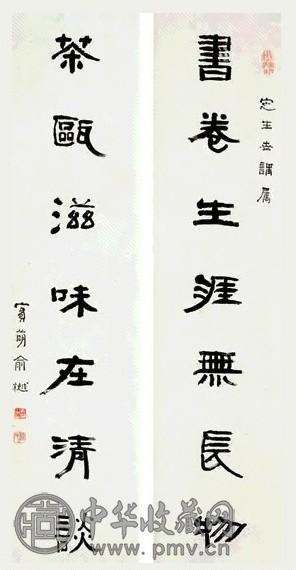 生世講屬
書卷生涯無長物
茶甌滋味在清談
賓萌俞樾
中华收藏网
www.pmv.cn